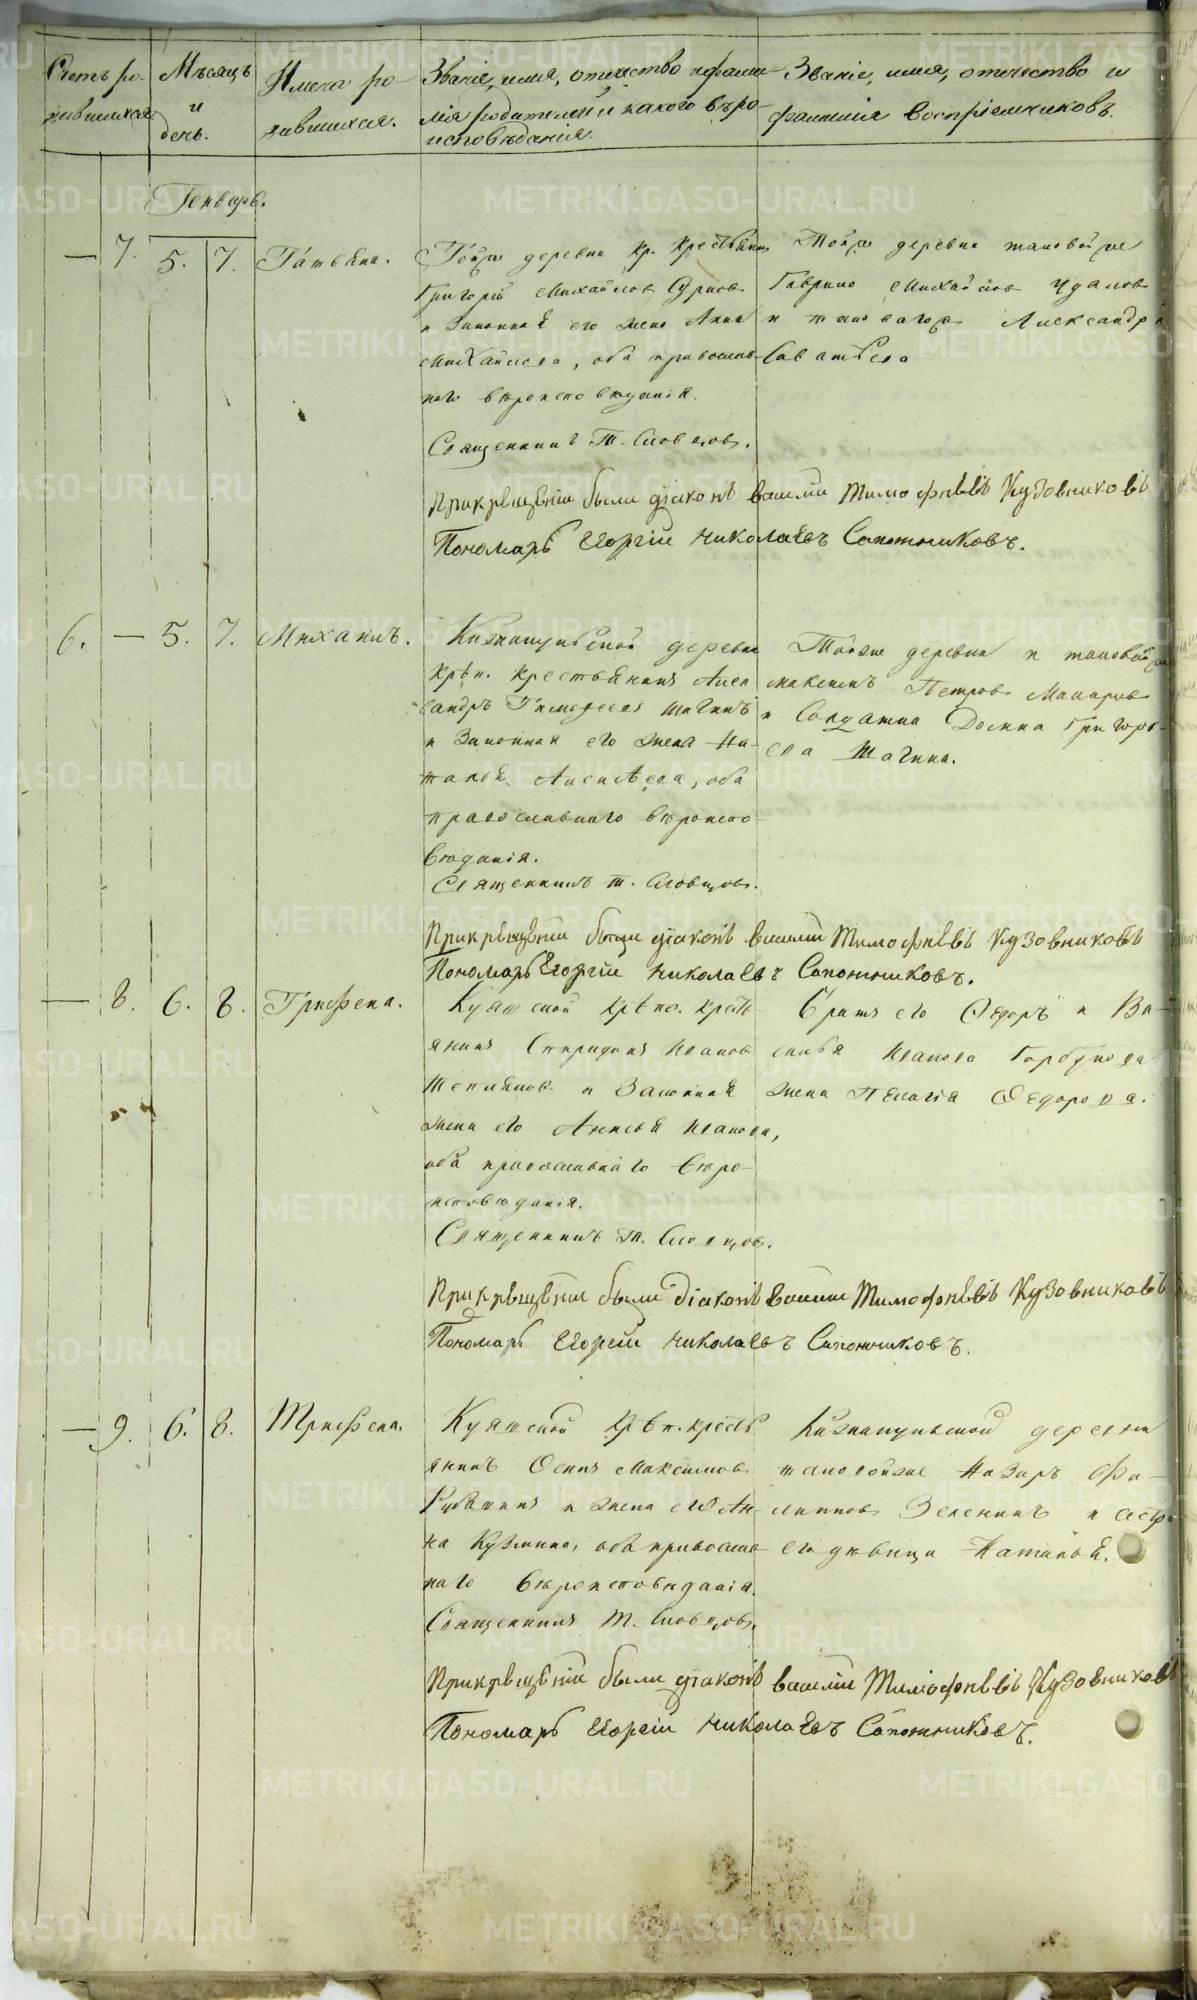 Счетъ ро-
дившихся.
Мѣсяцъ
и
день.
Имена ро
дившихся.
Званіе, имя, отчество и фами-
лія родителей и какого вѣро-
исповѣданія.
Званіе, имя, отчество и
фамилія воспріемниковъ.
Генварь.
— 7. 5. 7. Татьяна.
Тойже деревни кр. крестьянин
Григорій Михайлов
и Законная его жена Анна
Михайлова, оба православ-
наго вѣроисповѣданія.
Священникъ Т. Словцов.
Тойже деревни таковой же
Гаврило Михайлов Чудалов
и таковагоже Александра
Саватѣева
При крещеніи были діаконъ василій Тимофѣевъ Кузовниковъ
Пономарь Егоргій Николаевъ Сапожниковъ.
6. — 5. 7. Михаилъ.
деревни
крѣп. крестьянинъ Алек
сандръ Тимофеевъ Шагинъ
и Законная его жена На-
талья Алексѣева, оба
православнаго вѣроиспо-
вѣданія.
Священникъ Т. Словцов.
Тойже деревни и таковой же
Максимъ Петров Макаров
и Солдатка Домна Григорь-
ева Шагина.
При крещеніи были діаконъ василій Тимофѣевъ Кузовниковъ
Пономарь Егоргій Николаевъ Сапожниковъ.
— 8. 6. 8. Трифена.
Куяшской крѣпо. кресть
янинъ Спиридонъ Иванов
и Законная
жена его Анисья Иванова,
оба православнаго вѣро-
исповѣданія.
Священникъ Т. Словцов.
Братъ его Ѳедоръ и Ва-
силья Иванова Горбунова
жена Пелагія Ѳедорова.
При крещеніи были діаконъ василій Тимофѣевъ Кузовниковъ
Пономарь Егоргій Николаевъ Сапожниковъ.
— 9. 6. 8. Трифена.
Куяшской крѣп. кресть
янинъ Осипъ Максимов
и жена его Ан-
на Кузмина, оба православ-
наго вѣроисповѣданія.
Священникъ Т. Словцов.
деревни
таковойже Назаръ Фи-
липпов Зеленинъ и сестра
его дѣвица Наталья.
При крещеніи были діаконъ василій Тимофѣевъ Кузовниковъ
Пономарь Егоргій Николаевъ Сапожниковъ.
METRIKI.GASO-URAL.RU